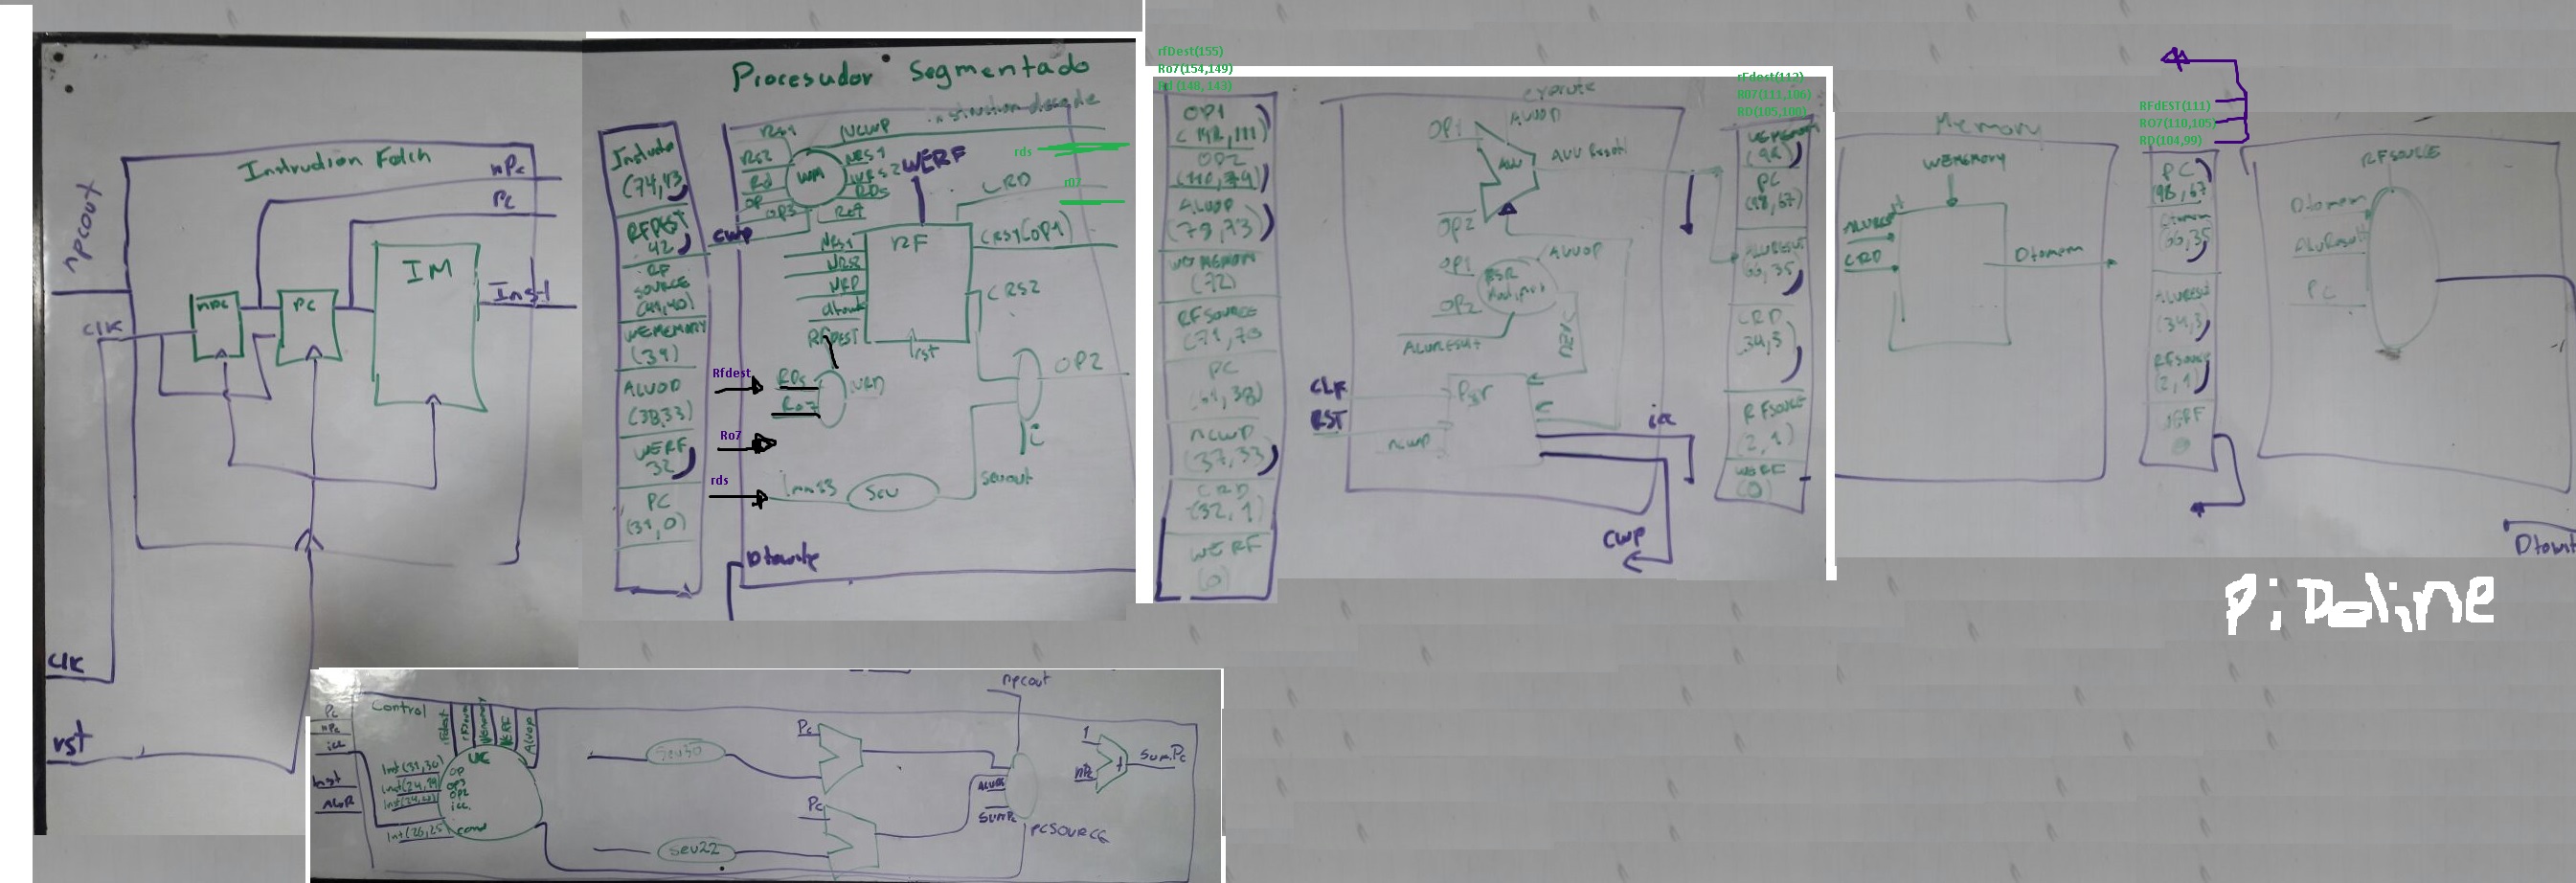 Procesador Segmentado
Instruction Fetch
nPc
Pc
npcout
IM
nPC
PC
Inst
CLK
CLK
rst
(74,43)
RFDEST
42
RF
SOURCE
(41,40)
WEMEMORY
(39)
ALUOP
(38,33)
WERF
32
PC
(31,0)
RS1
RS2
Rd
OP
OP3
WM
NCWP
NRS1
NRS2
RDs
Ro7
cwp
WERF
CRD
rds
r07
RF
NRS1
NRS2
NRD
RFDEST
rst
CRS1(OP1)
CRS2
OP2
Rfdest
RDs
Ro7
NRD
Ro7
rds
Imm13
SEU
seuout
i
Dtowrite
rfDest(155)
Ro7(154,149)
Rd (148, 143)
OP1
(142,111)
OP2
(110,79)
ALUOP
(78,73)
WEMEMORY
(72)
RFSOURCE
(71,70)
PC
(69,38)
NCWP
(37,33)
CRD
(32,1)
WERF
(0)
execute
OP1
ALUOP
ALU
ALU Result
OP2
OP1
ALUOP
PSR
OP2
ALURESULT
CLK
RST
PSR
C
ncwp
icc
CWP
rFdest(112)
R07(111,106)
RD(105,100)
WEMEMORY
PC
(98,67)
ALURESULT
(66,35)
CRD
(34,3)
RFSOURCE
(2,1)
WERF
(0)
Memory
WEMEMORY
ALURESULT
CRD
Dtomem
RFdEST(111)
RO7(110,105)
RD(104,99)
PC
(98,67)
Dtomem
(66,35)
ALURESULT
(34,3)
RFSOURCE
(2,1)
WERF
0
RFSOURCE
Dtomem
AluResult
PC
Dtowrit
PiDeline
Control
Pc
nPc
icc
Inst
ALUR
Rfdest
WERF
ALUOP
UC
Inst(31,30)
OP
Inst(24,19)
OP3
OP2
icc
cond
seu30
seu22
Pc
Pc
npcout
SUMPC
PCSOURCE
1
nPc
+
SumPc